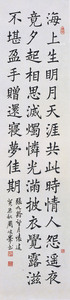 海上生明月天涯共此時情人怨遙夜
竟夕起相思滅燭憐光滿披衣覺露滋
不堪盈手贈還寢夢佳期
張九齡望月懷遠